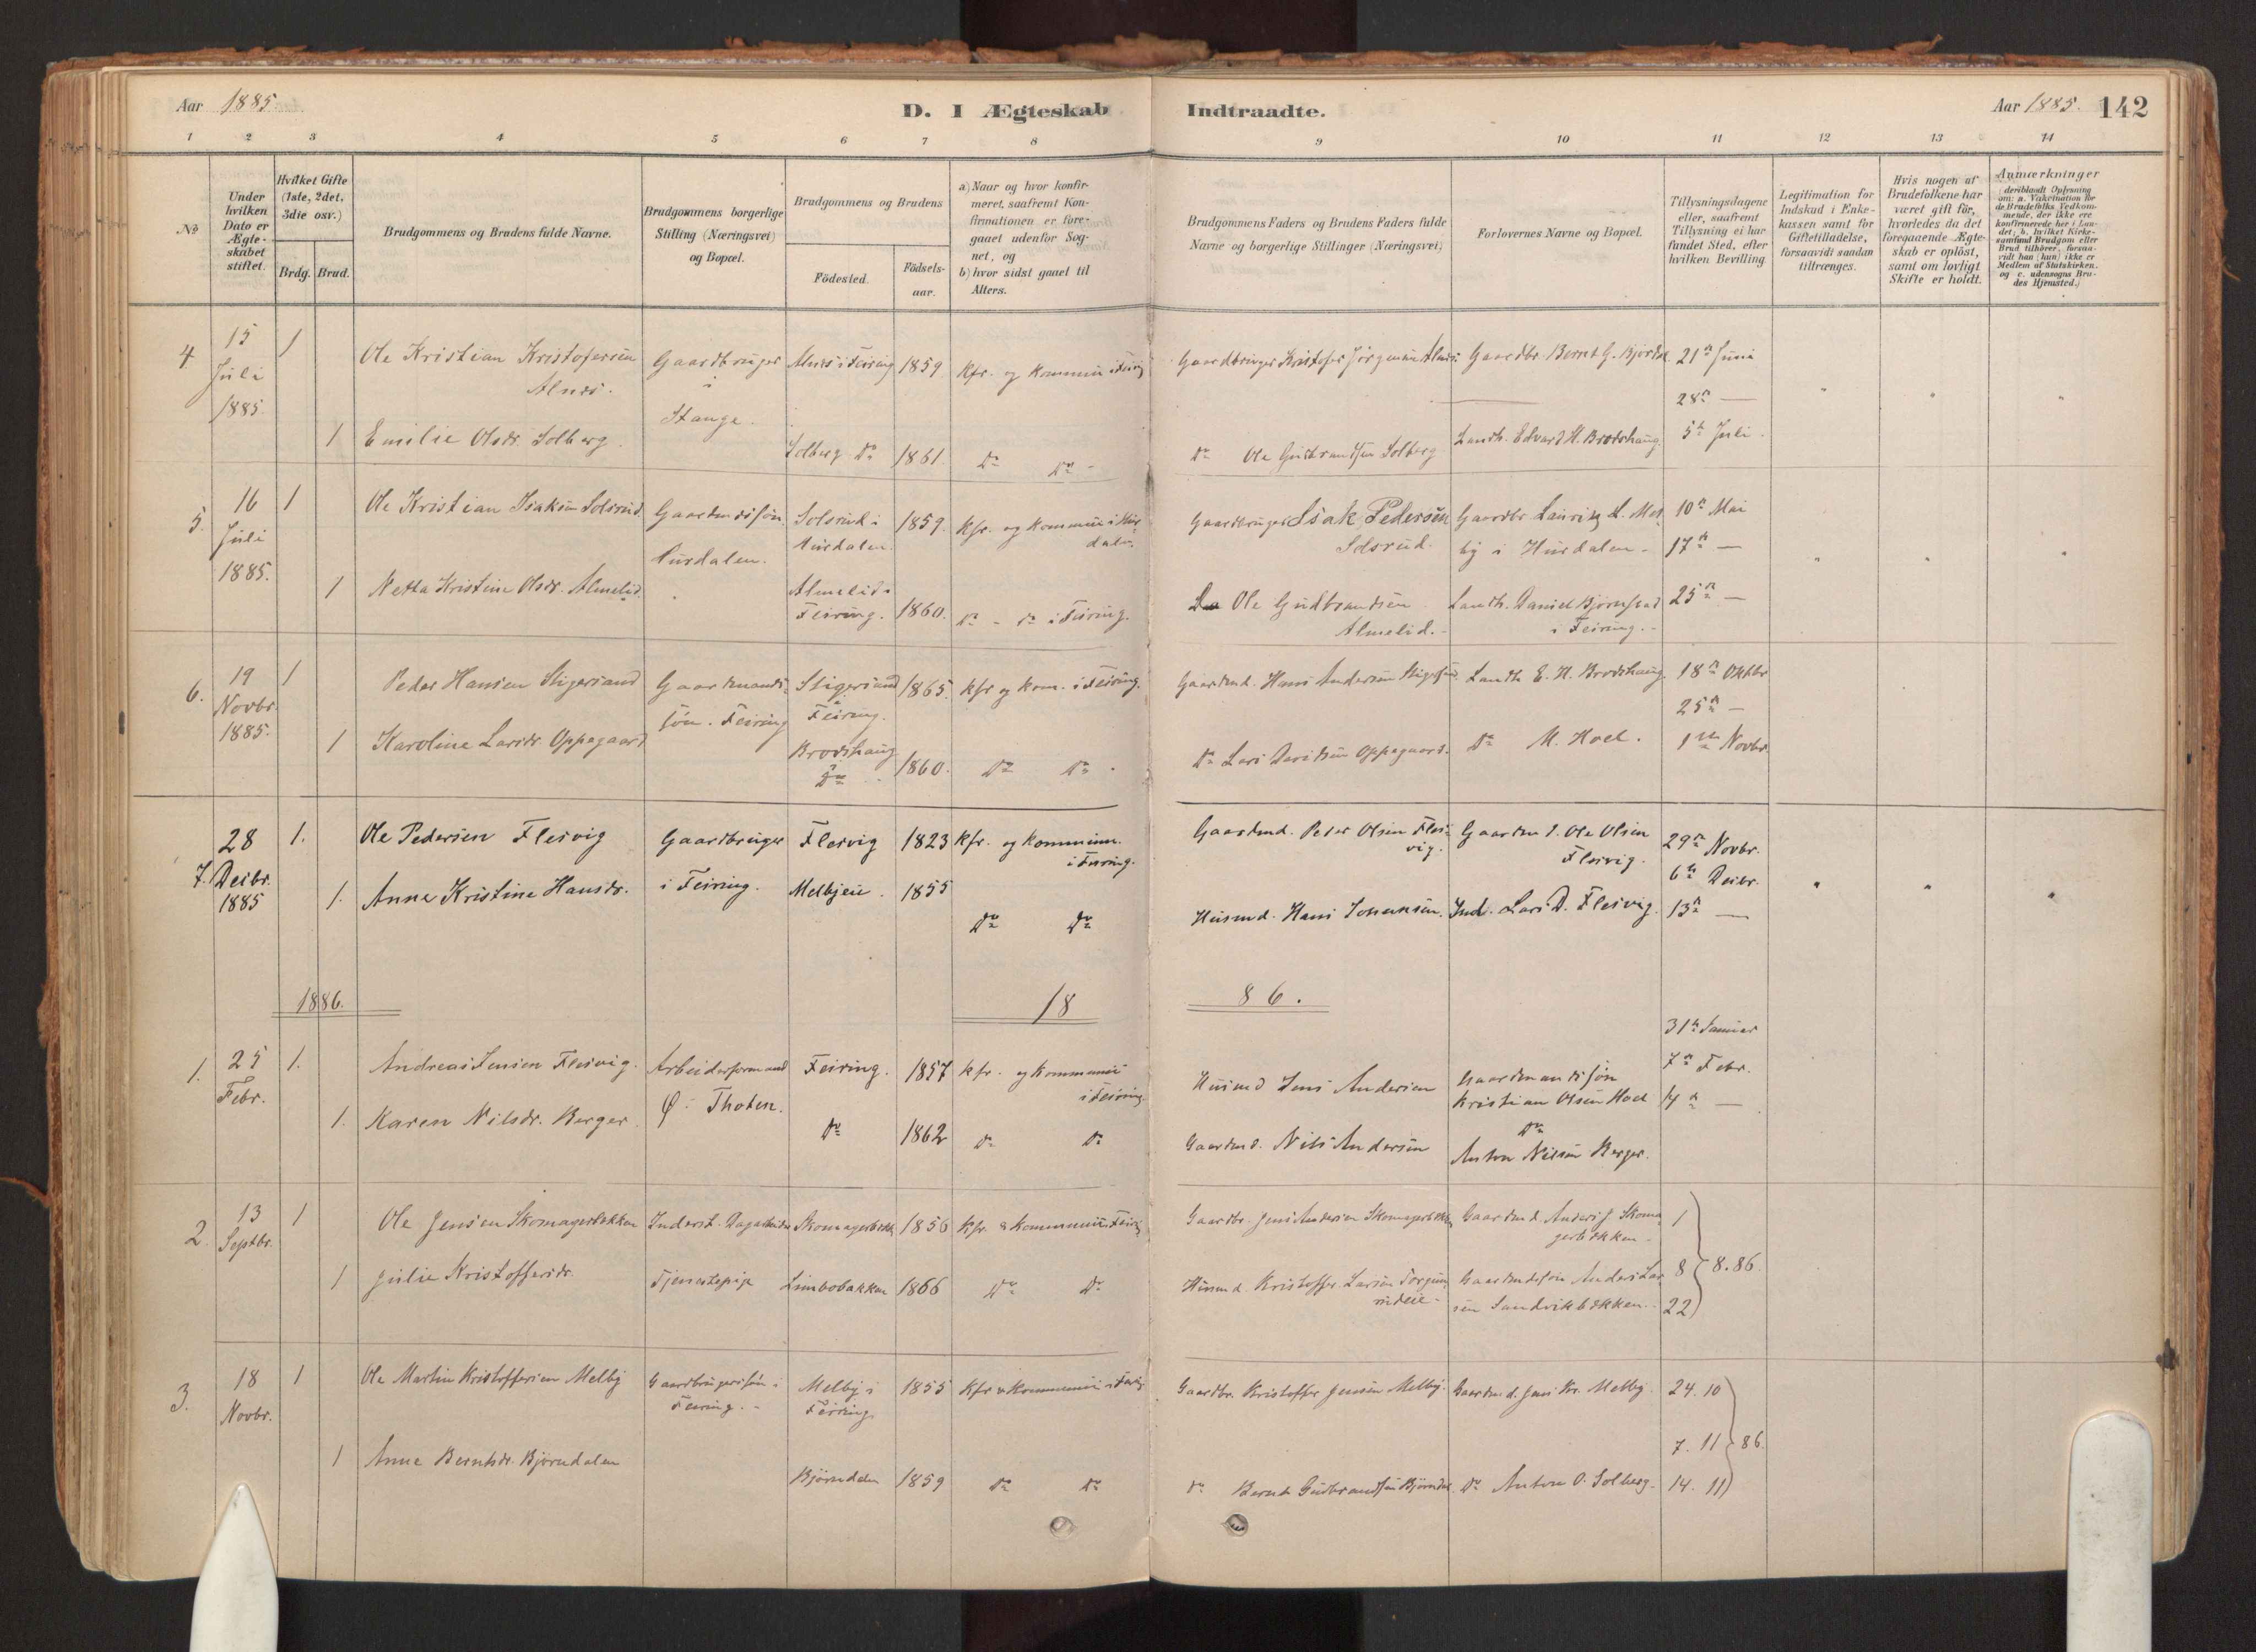 Aar 1885
D. I Ægteskab Indtraadte.
Aar 1885. 142
1 2 3 4 5 6 7 8 9 10 11 12 13 14
No
Under hvilken Dato er Ægteskabet stiftet.
Hvilket Gifte (1ste, 2det, 3die osv.)
Brdg. Brud.
Brudgommens og Brudens fulde Navne.
Brudgommens borgerlige Stilling (Næringsvei) og Bopæl.
Brudgommens og Brudens
Födested.
Födsels-aar.
a) Naar og hvor konfirmeret, saafremt Konfirmationen er foregaaet udenfor Sognet, og
b) hvor sidst gaaet til Alters.
Brudgommens Faders og Brudens Faders fulde Navne og borgerlige Stillinger (Næringsvei)
Forlovernes Navne og Bopæl.
Tillysningsdagene eller, saafremt Tillysning ei har fundet Sted, efter hvilken Bevilling
Legitimation for Indskud i Enkekassen samt for Giftetilladelse, forsaavidt saadan tiltrænges.
Hvis nogen af Brudefolkene har været gift för, hvorledes da det foregaaende Ægteskab er oplöst, samt om lovligt Skifte er holdt.
Anmærkninger (deriblandt Oplysning om: a. Vakcination for de Brudefolks Vedkommende, der ikke ere konfirmerede her i Landet; b. hvilket Kirkesamfund Brudgom eller Brud tilhörer, forsaavidt han (hun) ikke er Medlem af Statskirken. og c. udensogns Brudes Hjemsted.)
4 15 Juli 1885 1 Ole Kristian Kristofersen Alnæs. Gaardbruger i Stange. Alnæs i Feiring 1859. Kfr. og kommun i Feiring Gaardbruger Kristofer Jörgensen Alnæs Gaardbr. Bernt G. Björndal 21n Juni
28n —
1 Emilie Olsdr. Solberg. Solberg Do 1861. Do Do - Do Ole Gulbrandsen Solberg Landh. Edvard H. Brodshaug 5te Juli.
5. 16 Juli 1885. 1 Ole Kristian Isaksen Solsrud. Gaardmdssön. Hurdalen. Solsrud i Hurdalen. 1859. Kfr. og kommun i Hurdalen. Gaardbruger Isak Pedersen Solsrud. Gaardbr. Lauritz L. Mel- by i Hurdalen - 10n Mai
17n —
1 Netta Kristine Olsdr. Almelid. Almelid i Feiring. 1860. Do - do i Feiring. Do Ole Gudbrandsen Almelid. - Landh. Daniel Björnstad i Feiring. - 25n —
6. 19 Novbr. 1885. 1 Peder Hansen Stigersand Gaardmandssön. Feiring Stigersand Feiring. 1865. Kfr og kom. i Feiring. Gaardmd. Hans Andersen Stigersand Landh E. H. Brodshaug. 18n Oktbr
25n —
1 Karoline Larsdr. Oppegaard Brodshaug Do 1860. Do Do. Do Lars Davidsen Oppegaard. Do M. Hoel. 1ste Novbr.
7. 28 Decbr. 1885 1. Ole Pedersen Flesvig Gaardbruger i Feiring. Flesvig 1823 Kfr. og kommun. i Feiring. Gaardmd. Peder Olsen Flesvig. Gaardmd. Ole Olsen Flesvig. 29n Novbr.
6te Decbr.
1. Anne Kristine Hansdr. Melbjeie. 1855 Do Do Husmd. Hans Johansen. Ind. Lars D. Flesvig. 13n —
1886. 18 86.
31n Januar
1. 25 Febr. 1. Andreas Jensen Flesvig. Arbeiderformand Ö. Thoten. Feiring. 1857 Kfr. og Kommun i Feiring. Husmd Jens Andersen Gaardmandssön Kristian Olsen Hoel 7n Febr.
14n —
1. Karen Nilsdr. Berger. Do 1862 Do Do Gaardmd. Nils Andersen Do Anton Nilsen Berger.
2. 13 Septbr. 1 Ole Jensen Skomagerbakken Inderst. Dagarbeider Skomagerbakk 1856 Kfr. & kommun i Feiring Gaardbr. Jens Andersen Skomagerbakken Gaardmd Anders J. Skomagerbakken - 1
1 Julie Kristoffersdr. Tjenestepige Limbobakken 1866 Do Do Husmd. Kristoffer Larsen Torgunrudeie - Gaardmdssön Anders Larsen Sandvikbakken. 8 } 8. 86.
22
3. 18 Novbr. 1 Ole Martin Kristoffersen Melby Gaardbrugersön i Feiring. - Melby i Feiring. 1855 Kfr & Kommun i Feiring Gaardbr. Kristoffer Jensen Melby. Gaardmd. Jens Kr. Melby. 24. 10
7. 11 } 86.
1 Anne Berntsdr. Björndalen Björndalen 1859 Do Do Do Bernt Gudbrandsen Björndal. Do Anton O. Solberg. 14. 11